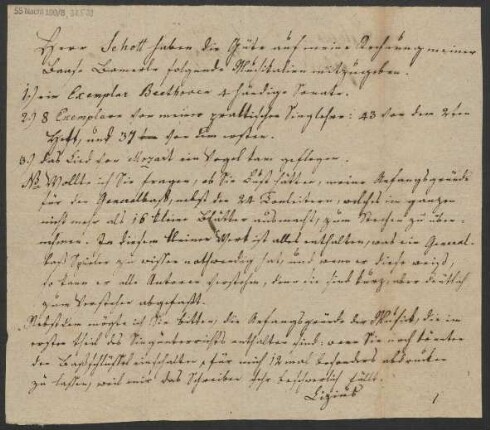 55 Nachl 100/B,
Herr Schott haben die Güte auf meine Rechnung meiner
Baase folgende Musikalien mitzugeben.
1.) ein Exemplar Beethoven 4 händige Sonate.
2.) 8 Exemplare von meiner praktischen Singlehre: 43 von dem 2ten
Heft, und 37 von dem ersten.
3.) das Lied von Mozart ein Vogel kam geflogen.
Wollte ich Sie fragen, ob Sie Lust hätten, meine Anfangsgründe
für den Generalbaß, nebst den 24 Tonleitern, welches im ganzen
nicht mehr als 16 kleine Blätter ausmacht, zum Stechen zu über-
nehmen. In diesem kleinen Werk ist alles enthalten, was ein General-
baß Spieler zu wissen nothwendig hat, und wenn er diese weißt,
so kann er alle Autoren verstehen, denn sie sind kurz, aber deutlich
zum Verstehen abgefaßt.
Nebstdem möchte ich Sie bitten, die Anfangsgründe der Musick, die im
ersten Theil des Singunterrichts enthalten sind: wenn Sie noch könnten
den Baßschlüssel einschalten, für mich 12 mal besonders abdrucken
zu lassen, weil mir das Schreiben sehr beschwerlich fällt.
Lizius
1